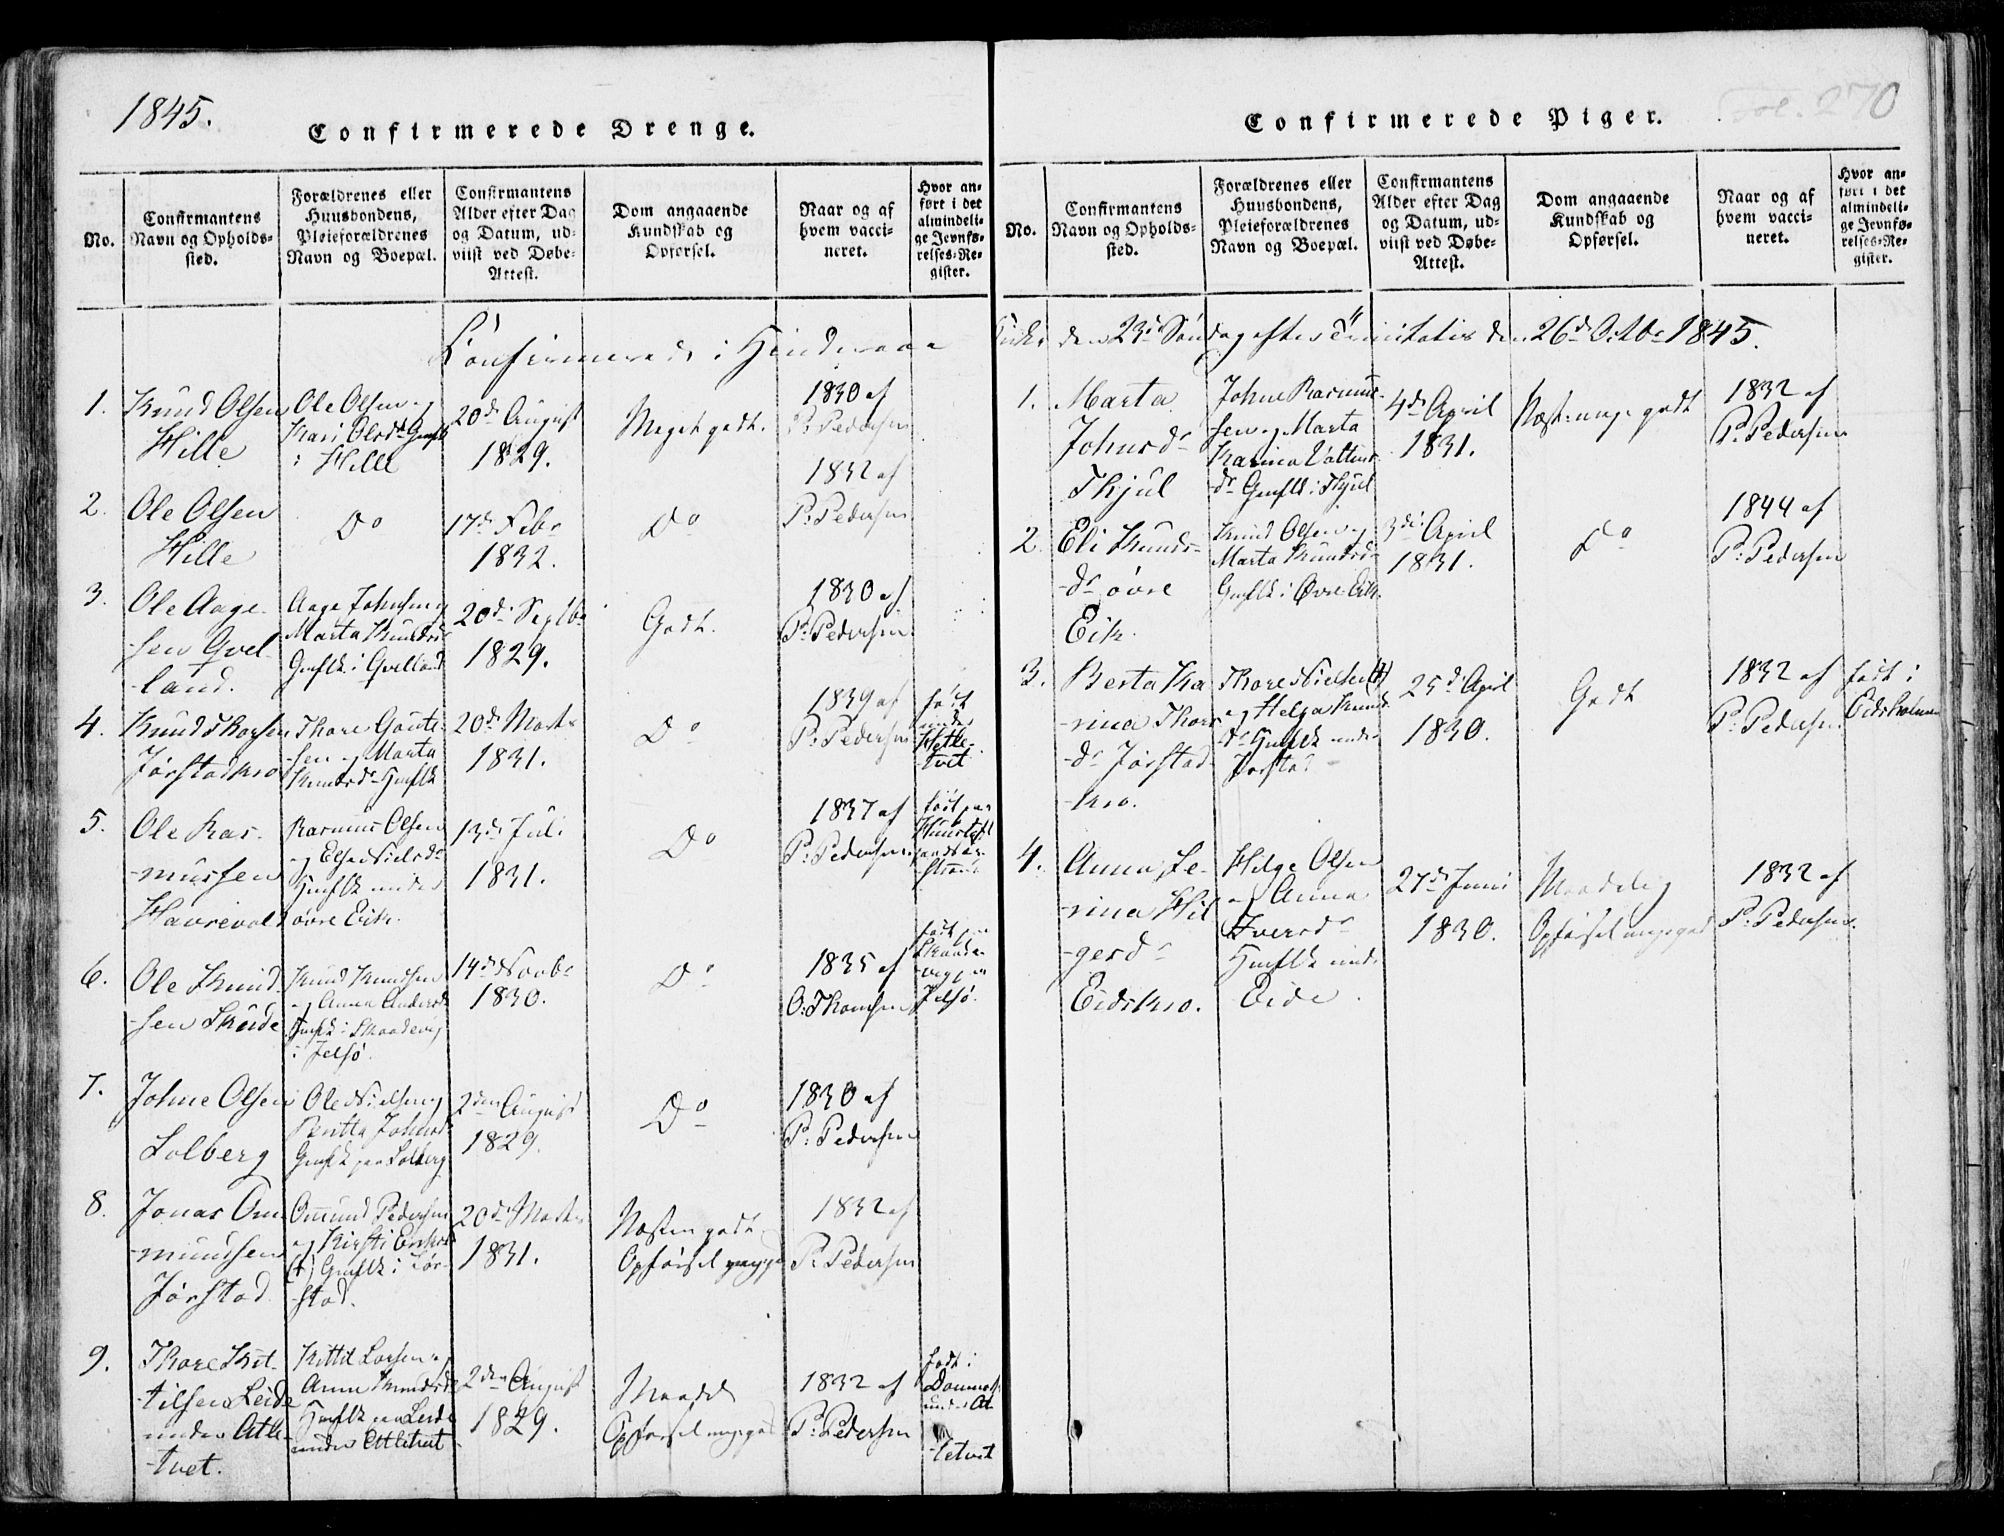 1845.
Confirmerede Drenge.
No.
Confirmantens
Navn og Opholds-
sted.
Forældrenes eller
Huusbondens,
Pleieforældrenes
Navn og Boepæl.
Confirmantens
Alder efter Dag
og Datum, ud-
viist ved Døbe-
Attest.
Dom angaaende
Kundskab og
Opførsel.
Naar og af
hvem vacci-
neret.
Hvor an-
ført i det
almindeli-
ge Jevnfø-
relses-Re-
gister.
Confirmerede i Hinderaae
1.
Knud Olsen
Hille
Ole Olsen og
Kari Olsdr Gmflk
i Hille
20de August
1829.
Meget godt.
1830 af
P: Pedersen
2.
Ole Olsen
Hille
Do
17de Febr
1832.
Do
1832 af
P: Pedersen
3.
Ole Aage-
sen Qvel-
land.
Aage Johnsen og
Marta Knudsdr
Gmflk i Qvelland
20de Septbr
1829.
Godt.
1830 af
P: Pedersen
4.
Knud Thorsen
Jørstadkro
Thore Goute-
sen og Marta
Knudsdr Hmflk
20de Marts
1831.
Do
1839 af
P: Pedersen
født
under
Hetle-
tvet
5.
Ole Ras-
mussen
Havrevold
Rasmus Olsen
og Else Nielsdr
Hmflk under
øvre Eik.
13de Juli
1831.
Do
1837 af
P: Pedersen
født paa
6.
Ole Knud-
sen Skeide
Knud Knudsen
og Anna Andersdr
Hmflk i Skaadevig
i Jelsø.
14de Novbr
1830.
Do
1835 af
O: Thomsen
født paa
Skaade-
vig paa
Jelsø.
7.
Johne Olsen
Solberg
Ole Nielsen og
Beritta Johnsdr
Gmflk paa Solberg
2den August
1829.
Do
1830 af
P: Pedersen
8.
Jonas Om-
mundsen
Jørstad
Omund Pedersen
og Kirsti
(†) Gmflk i Jør-
stad.
20de Marts
1831.
Næsten godt
Opførsel
1832 af
P: Pedersen
9.
Thore Kit-
tilsen Leide
under Atle-
tvet.
Kittil Larsen og
Anne Knudsdr
Hmflk paa Leide
under Atletvet
2den August
1829.
Maadel
Opførsel
1832 af
P: Pedersen
født i
under At-
letvet
Fol. 270
Confirmerede Piger.
No.
Confirmantens
Navn og Opholds-
sted.
Forældrenes eller
Huusbondens,
Pleieforældrenes
Navn og Boepæl.
Confirmantens
Alder efter Dag
og Datum, ud-
viist ved Døbe-
Attest.
Dom angaaende
Kundskab og
Opførsel.
Naar og af
hvem vacci-
neret.
Hvor an-
ført i det
almindeli-
ge Jevnfø-
relses-Re-
gister.
Kirke den 23de Søndag efter Trinitatis den 26de Octbr 1845.
1.
Marta
Johnsdr
Thjul
Johne Rasmus-
sen og Marta
Karina
dr Gmflk i Thjul
4de April
1831.
Næst: meget godt
1832 af
P: Pedersen
2.
Eli Knuds-
dr øvre
Eik.
Knud Olsen og
Marta Knudsdr
Gmflk i Øvre Eik.
3die April
1831.
Do
1844 af
P: Pedersen
3.
Berta Ka-
rina Thors-
dr Jørstad-
kro.
Thore Nielsen (†)
og Helga Knuds-
dr Hmflk under
Jørstad
25de April
1830.
Godt
1832 af
P: Pedersen
født i
Eidsholmen
4.
Anna Se-
rina Hil-
gersdr
Eidskro.
Helge Olsen
og Anna
Iversdr
Hmflk under
Eide.
27de Juni
1830.
Maadelig
Opførsel meget god
1832 af
P: Pedersen.